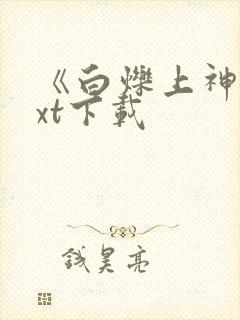 《白爍上神
xt下載
錢昊亮